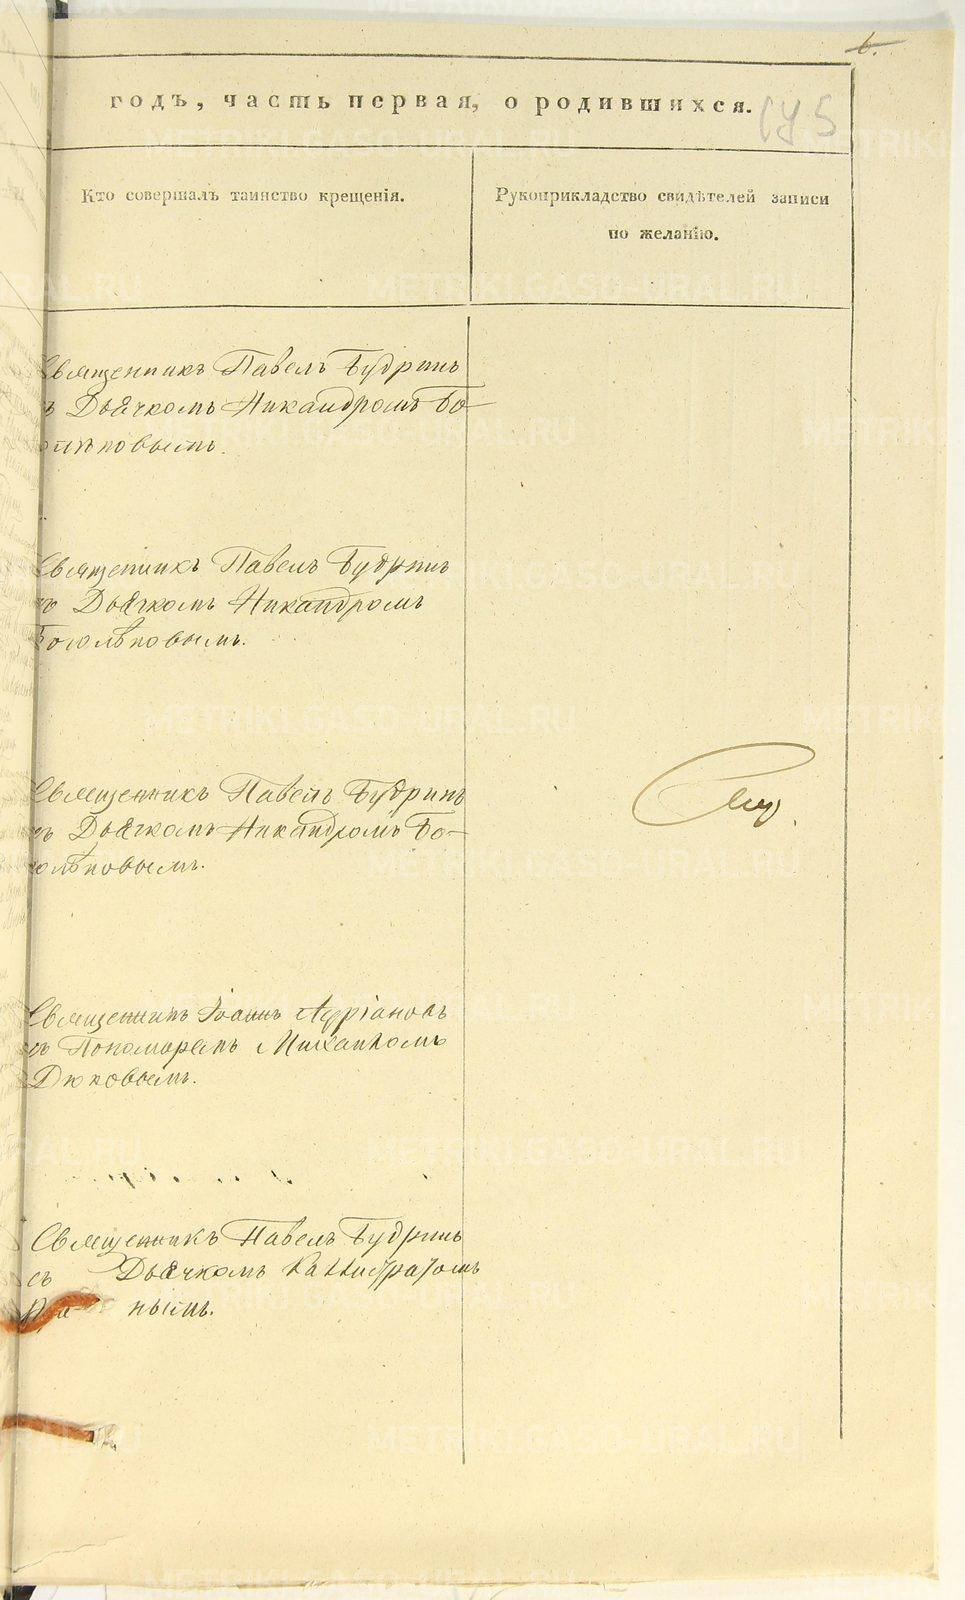 6.
годъ, часть первая, о родившихся.
Кто совершалъ таинство крещенія.
Рукоприкладство свидѣтелей записи
по желанію.
Священникъ Павелъ Будринъ
съ Дьячкомъ Никандромъ Бо-
голѣповымъ.
Священникъ Павелъ Будринъ
съ Дьячкомъ Никандромъ
Боголѣповымъ.
Священникъ Павелъ Будринъ
съ Дьячкомъ Никандромъ Бо-
голѣповымъ.
Священникъ Іоаннъ Адріановъ
съ Пономаремъ Михаиломъ
Дюковымъ.
Священникъ Павелъ Будринъ
съ Дьячкомъ Каллистратомъ
нымъ.
METRIKI.GASO-URAL.RU